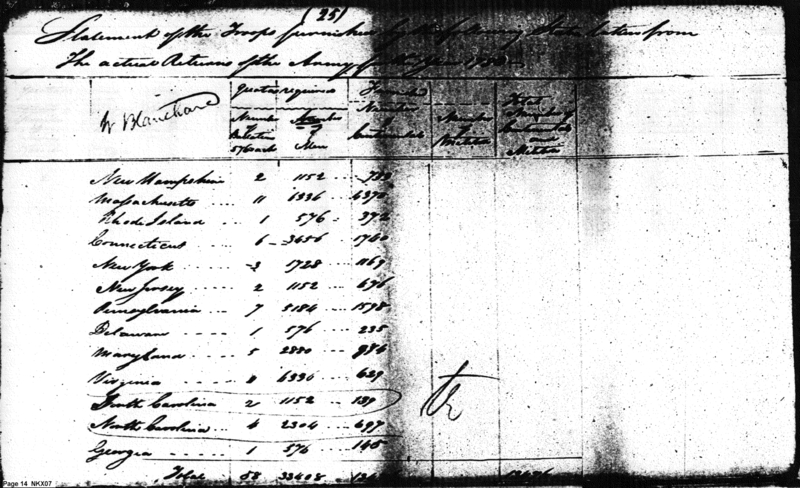 (25)
Statement of the Troops furnished by the following States taken from
The actual Returns of the Army for the Year
Quotas required
Furnished
W Blanchard
Number of Battalions 576 each
Number of Men
Number of Continentals
Number of Militia
Total Number of Continentals and Militia
New Hampshire 2 1152 ... 733
Massachusetts .. 11 6336 ... 4370
Rhode Island ... 1 576 - 372
Connecticut ... 6 - 3456 ... 1740
New York ..... 3 1728 ... 1169
New Jersey .... 2 1152 ... 676
Pennsylvania ... 7 5184 ... 1598
Delaware .... 1 576 ... 235
Maryland .... 5 2880 ...
Virginia ..... 6336 ... 629
South Carolina 2 1152 ... 139
North Carolina .. 4 2304 ... 697
Georgia ..... 1 576 ... 145
Total 58 33408
Page 14 NKX07